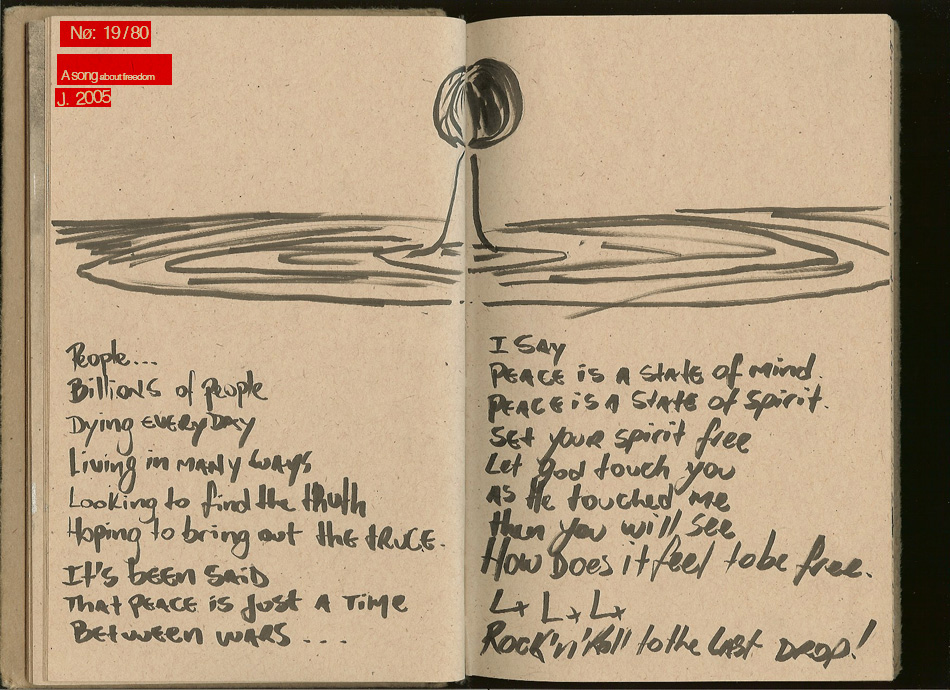 Nø: 19/80
A song about freedom
J. 2005
People...
Billions of people
Dying EVERYDAY
Living in many ways
Looking to find the thuth
Hoping to bring out the truce.
It's been said
That peace is just a time
Between wars ...
I say
Peace is a state of mind.
Peace is a state of spirit.
Set your spirit free
Let god touch you
as He touched me
then you will see
How Does it feel to be free.
Rock'n'Roll to the Last DROP!